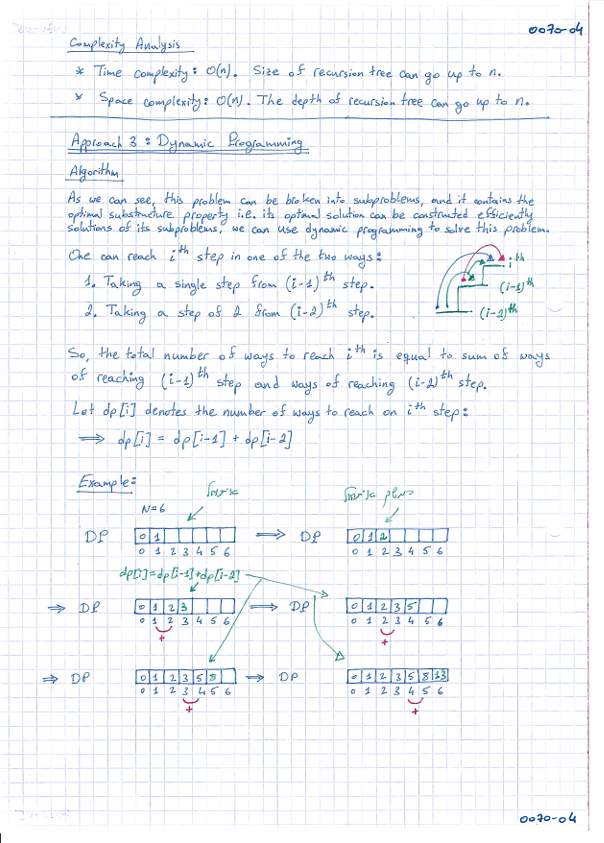 0070-04
Complexity Analysis
* Time complexity: O(n). Size of recursion tree can go up to n.
* Space complexity: O(n). The depth of recursion tree can go up to n.
Approach 3: Dynamic Programming
Algorithm
As we can see, this problem can be broken into subproblems, and it contains the
optimal substructure property i.e. its optimal solution can be constructed efficiently
solutions of its subproblems, we can use dynamic programming to solve this problem.
One can reach i^th step in one of the two ways:
1. Taking a single step from (i-1)^th step.
2. Taking a step of 2 from (i-2)^th step.
i^th
(i-1)^th
(i-2)^th
So, the total number of ways to reach i^th is equal to sum of ways
of reaching (i-1)^th step and ways of reaching (i-2)^th step.
Let dp[i] denotes the number of ways to reach on i^th step:
⟹ dp[i] = dp[i-1] + dp[i-2]
Example:
N=6
DP 0 1 ⟹ DP 0 1 2
0 1 2 3 4 5 6 0 1 2 3 4 5 6
dp[i]=dp[i-1]+dp[i-2]
⟹ DP 0 1 2 3 ⟹ DP 0 1 2 3 5
0 1 2 3 4 5 6 0 1 2 3 4 5 6
+ +
⟹ DP 0 1 2 3 5 8 ⟹ DP 0 1 2 3 5 8 13
0 1 2 3 4 5 6 0 1 2 3 4 5 6
+ +
0070-04